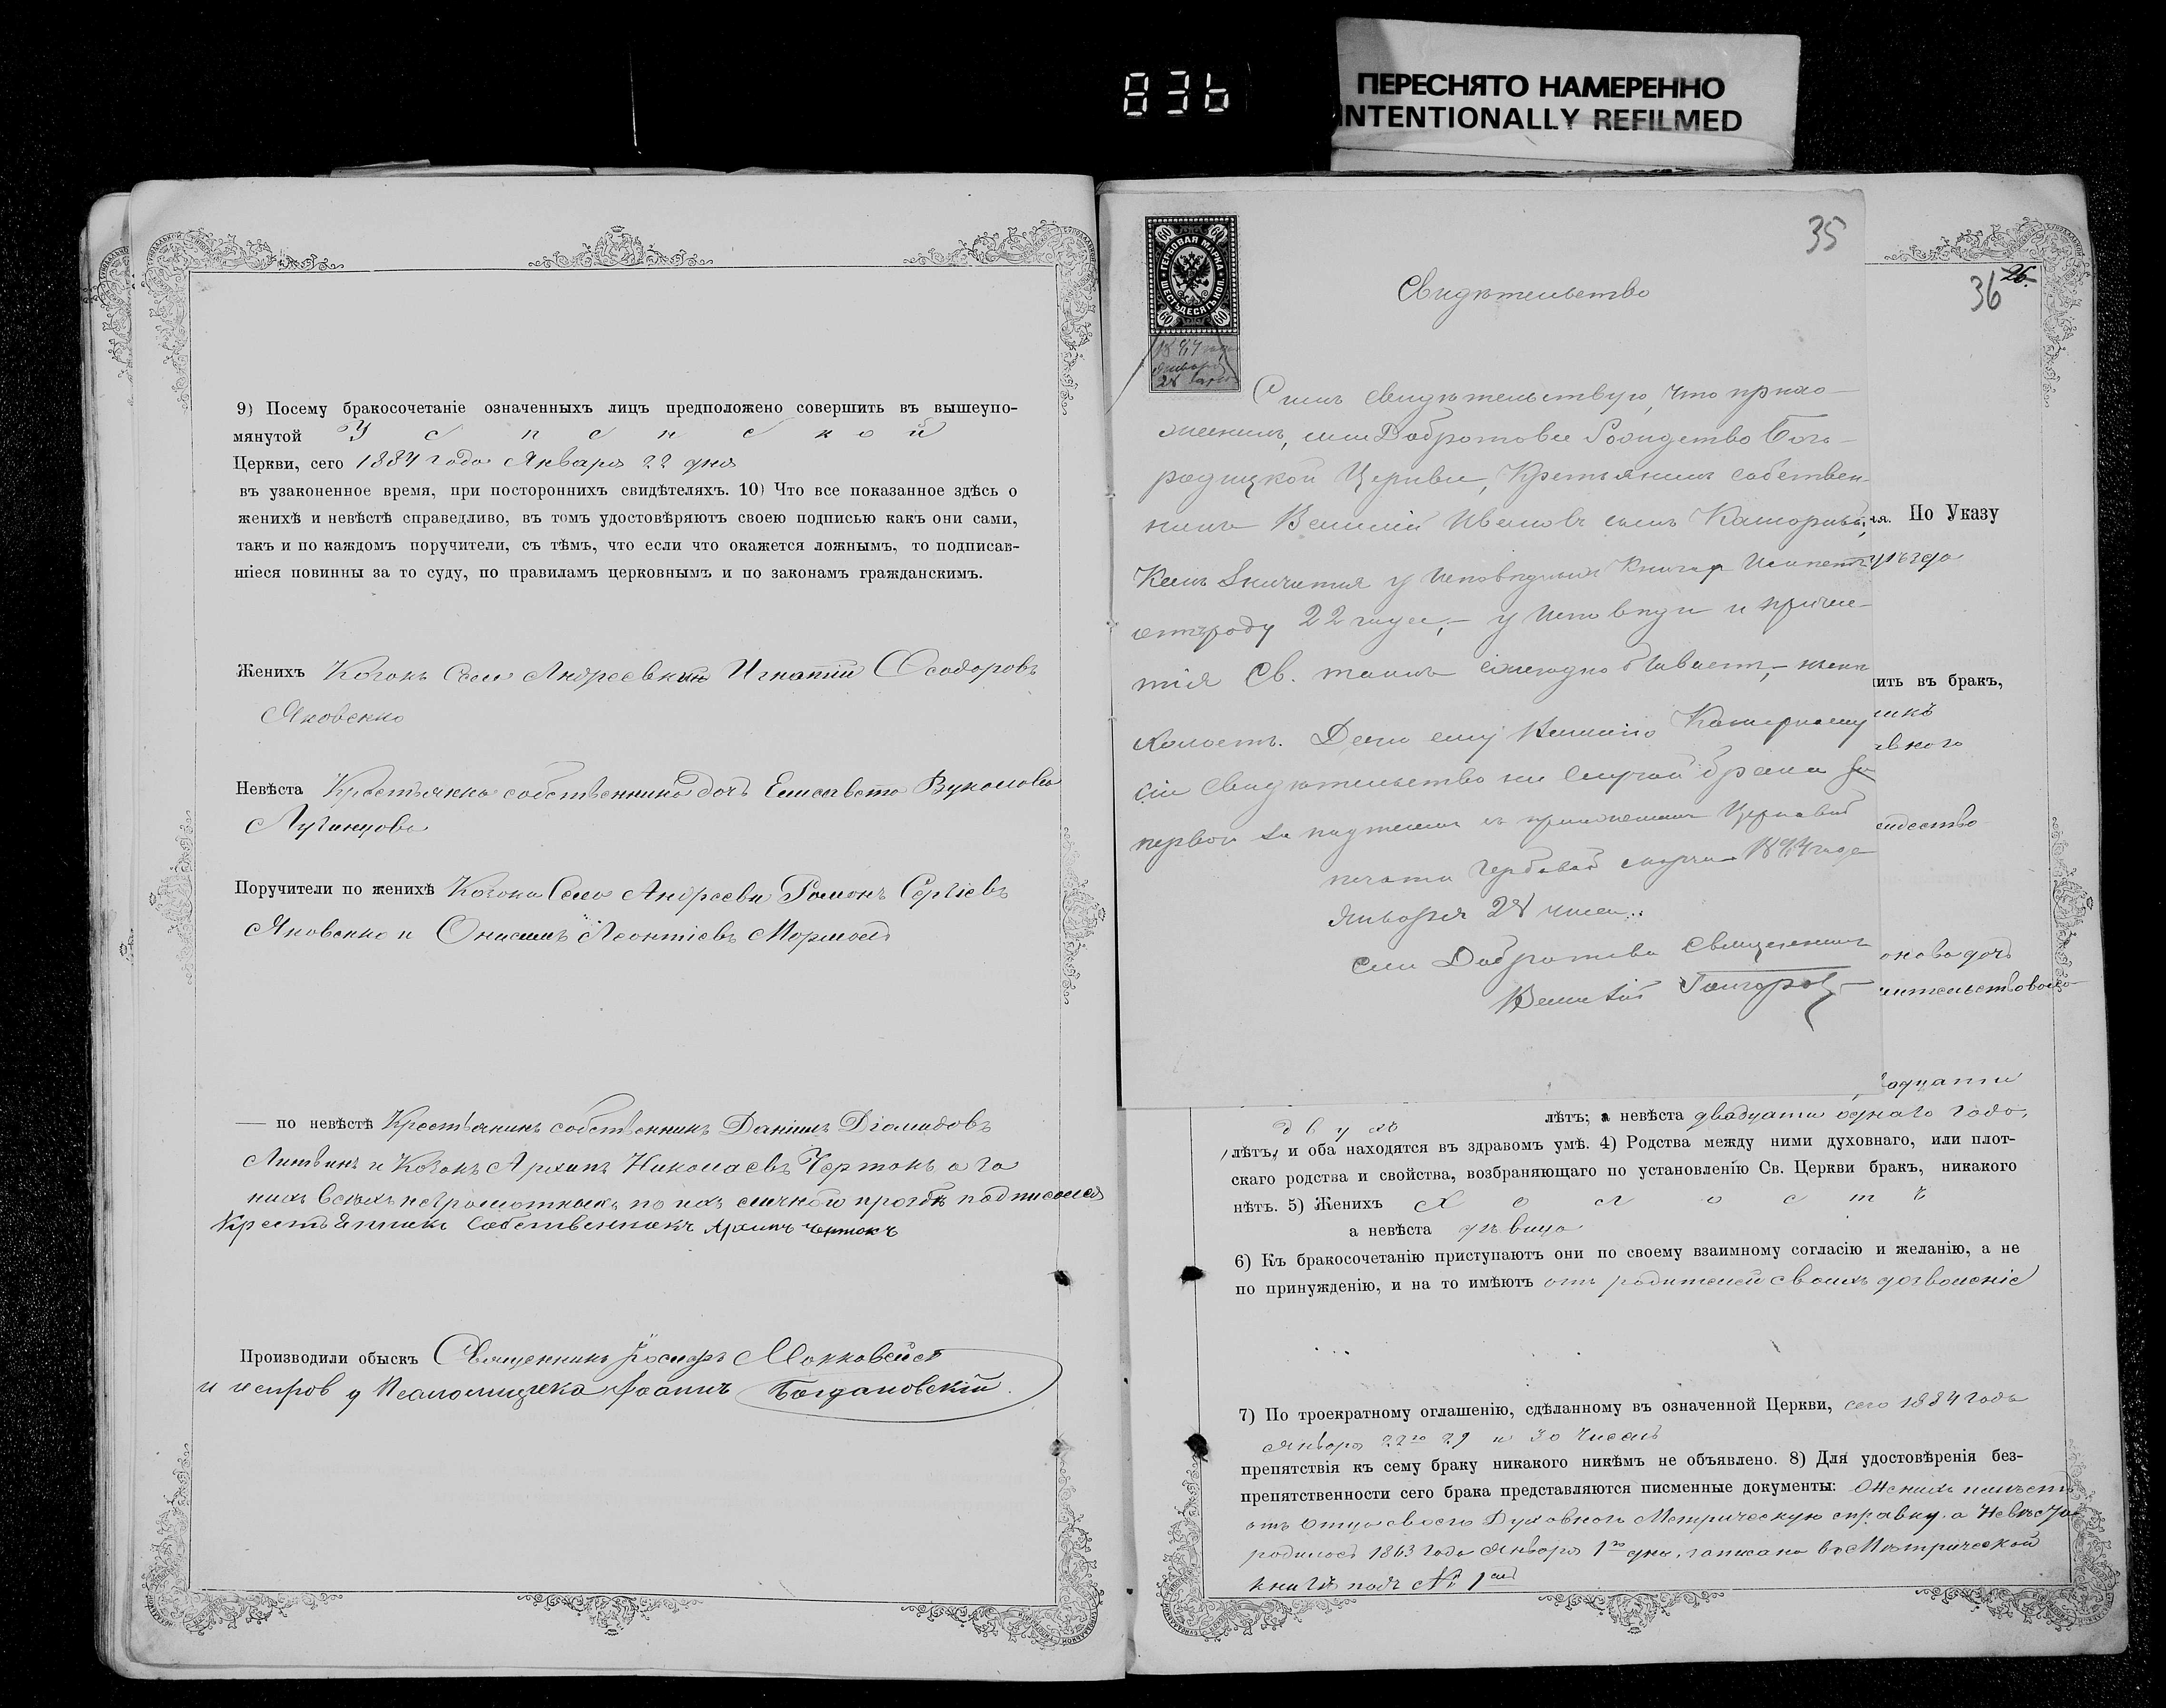 036
ПЕРЕСНЯТО НАМЕРЕННО
INTENTIONALLY REFILMED
9) Посему бракосочетаніе означенныхъ лицъ предположено совершить въ вышеупо-
мянутой Успенской
Церкви, сего 1884 года Января 22 дня
въ узаконенное время, при постороннихъ свидѣтеляхъ. 10) Что все показанное здѣсь о
женихѣ и невѣстѣ справедливо, въ томъ удостовѣряютъ своею подписью какъ они сами,
такъ и по каждомъ поручители, съ тѣмъ, что если что окажется ложнымъ, то подписав-
шіеся повинны за то суду, по правиламъ церковнымъ и по законамъ гражданскимъ.
Женихъ Козакъ Села Андреевки Игнатій Феодоровъ
Яковенко
Невѣста Крестьянина собственника дочь Елисавета Вуколова
Луганцова
Поручители по женихѣ Козаки Села Андреевки Романъ Сергіевъ
Яковенко и Онисимъ Леонтіевъ
— по невѣстѣ Крестьянинъ собственникъ Даніилъ Діомидовъ
Литвинъ и Козакъ Архипъ Николаевъ Чертокъ а за
нихъ всѣхъ неграмотныхъ по ихъ личной прозбѣ подписался
Крестьянинъ собственникъ Архипъ Чертокъ
Производили обыскъ Священникъ Іосифъ
и испров. д. Псаломщика Іоаннъ Богдановскій
35
60 60
ГЕРБОВАЯ МАРКА
ШЕСТЬДЕСЯТЪ КОП.
60 60
1884 года
Января
28
Свидѣтельство
Симъ свидѣтельствую, что прихо-
жанинъ, села Добротова Рождество Бого-
родицкой Церкви, Крестьянинъ собствен-
никъ Василій Ивановъ сынъ
у Исповѣдныхъ Книгахъ
отъ роду 22 года, — у Исповѣди и прича-
тія Св. таинъ ежегодно бываетъ, —
холостъ. Дано ему Василію
сіе свидѣтельство на случай брака
первой за подписомъ и приложеніемъ Церковной
печати Гербовой марки 1884 года
Января 28 числа.
села Добротова Священникъ
Василій
36 26.
По Указу
уѣзда
ить въ брак,
вного
двадцати
двухъ лѣтъ; а невѣста двадцати однаго года,
лѣтъ, и оба находятся въ здравомъ умѣ. 4) Родства между ними духовнаго, или плот-
скаго родства и свойства, возбраняющаго по установленію Св. Церкви бракъ, никакого
нѣтъ. 5) Женихъ Холостъ
а невѣста дѣвица
6) Къ бракосочетанію приступаютъ они по своему взаимному согласію и желанію, а не
по принужденію, и на то имѣютъ отъ родителей своихъ дозволеніе
7) По троекратному оглашенію, сдѣланному въ означенной Церкви, сего 1884 года
Января 22го 29 и 30 Чиселъ
препятствія къ сему браку никакого никѣмъ не объявлено. 8) Для удостовѣренія без-
препятственности сего брака представляются писменные документы: Женихъ имѣетъ
отъ Отца своего Духовнаго Метрическую справку, а Невѣста
родилась 1863 года Января 1го дня, записана въ Метрической
книгѣ подъ № 1ым